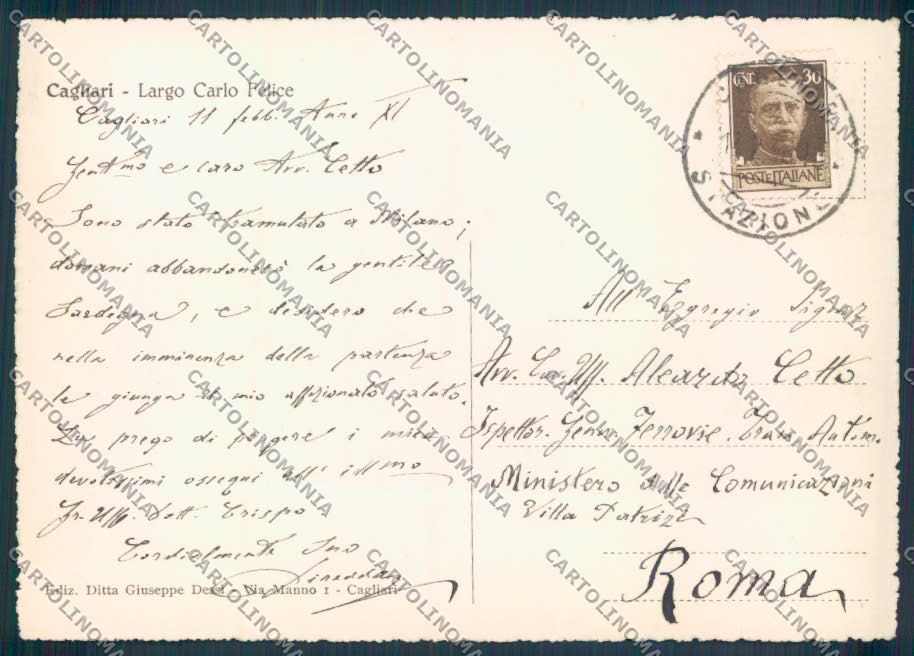 Cagliari - Largo Carlo Felice
Cagliari 11 febb. Anno XI
Gent.mo e caro Avv. Cetto
Sono stato tramutato a Milano;
domani abbandonerò la gentile
Sardegna, e desidero che
nella imminenza della partenza
le giunga il mio affezionato saluto.
La prego di porgere i miei
devotissimi ossequi all' ill.mo
Gr. Uff. Dott. Crispo
Cordialmente Suo
Ediz. Ditta Giuseppe Dessì - Via Manno 1 - Cagliari
CENT. 30
POSTE ITALIANE
STAZIONE
All' Egregio Signor
Avv. Cav. Uff. Alcardo Cetto
Ispettor. Gener. Ferrovie, Tram Autom.
Ministero delle Comunicazioni
Villa Patrizi
Roma
CARTOLINOMANIA